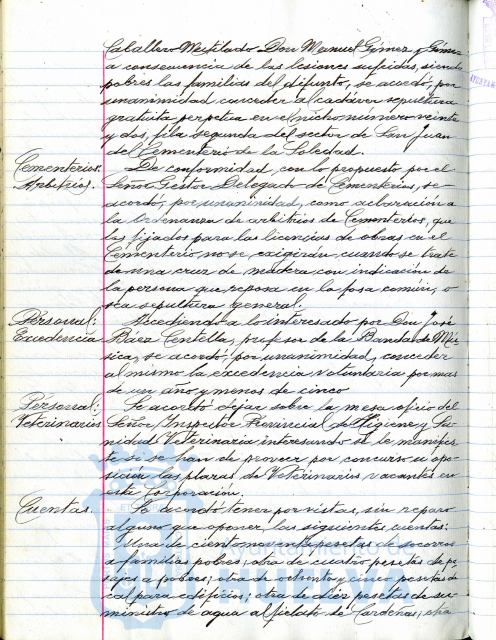 Caballero Mutilado Don Manuel Gómez y Gómez
a consecuencia de las lesiones sufridas, siendo
pobres las familias del difunto, se acordó, por
unanimidad conceder al cadaver sepultura
gratuita perpetua en el nicho número veinte
y dos, fila segunda del sector de San Juan
del Cementerio de la Soledad.
Cementerios. De conformidad, con lo propuesto por el
Arbitrios. Señor Gestor Delegado de Cementerios, se
acordó, por unanimidad, como aclaración a
la Ordenanza de arbitrios de Cementerios, que
los fijados para las licencias de obras en el
Cementerio no se exigirán, cuando se trate
de una cruz de madera con indicación de
la persona que reposa en la fosa común, o
sea sepultura general.
Personal: Accediendo a lo interesado por Don José
Excedencia Báez Centella, profesor de la Banda de Mú-
sica, se acordó, por unanimidad, conceder
al mismo la excedencia voluntaria por mas
de un año y menos de cinco
Personal: Se acordó dejar sobre la mesa oficio del
Veterinarios Señor Inspector Provincial de Higiene y Sa-
nidad Veterinaria interesando se le manifies-
te si se han de proveer por concurso u opo-
sición las plazas de Veterinarios vacantes en
esta Corporación.
Cuentas. Se acordó tener por vistas, sin reparo
alguno que oponer, las siguientes cuentas:
Una de ciento noventa pesetas de socorros
a familias pobres; otra de cuatro pesetas de pa-
sajes a pobres; otra de ochenta y cinco pesetas de
cal para edificios; otra de diez pesetas de su-
ministro de agua al fielato de Cardeñas; otra
Ayuntamiento de